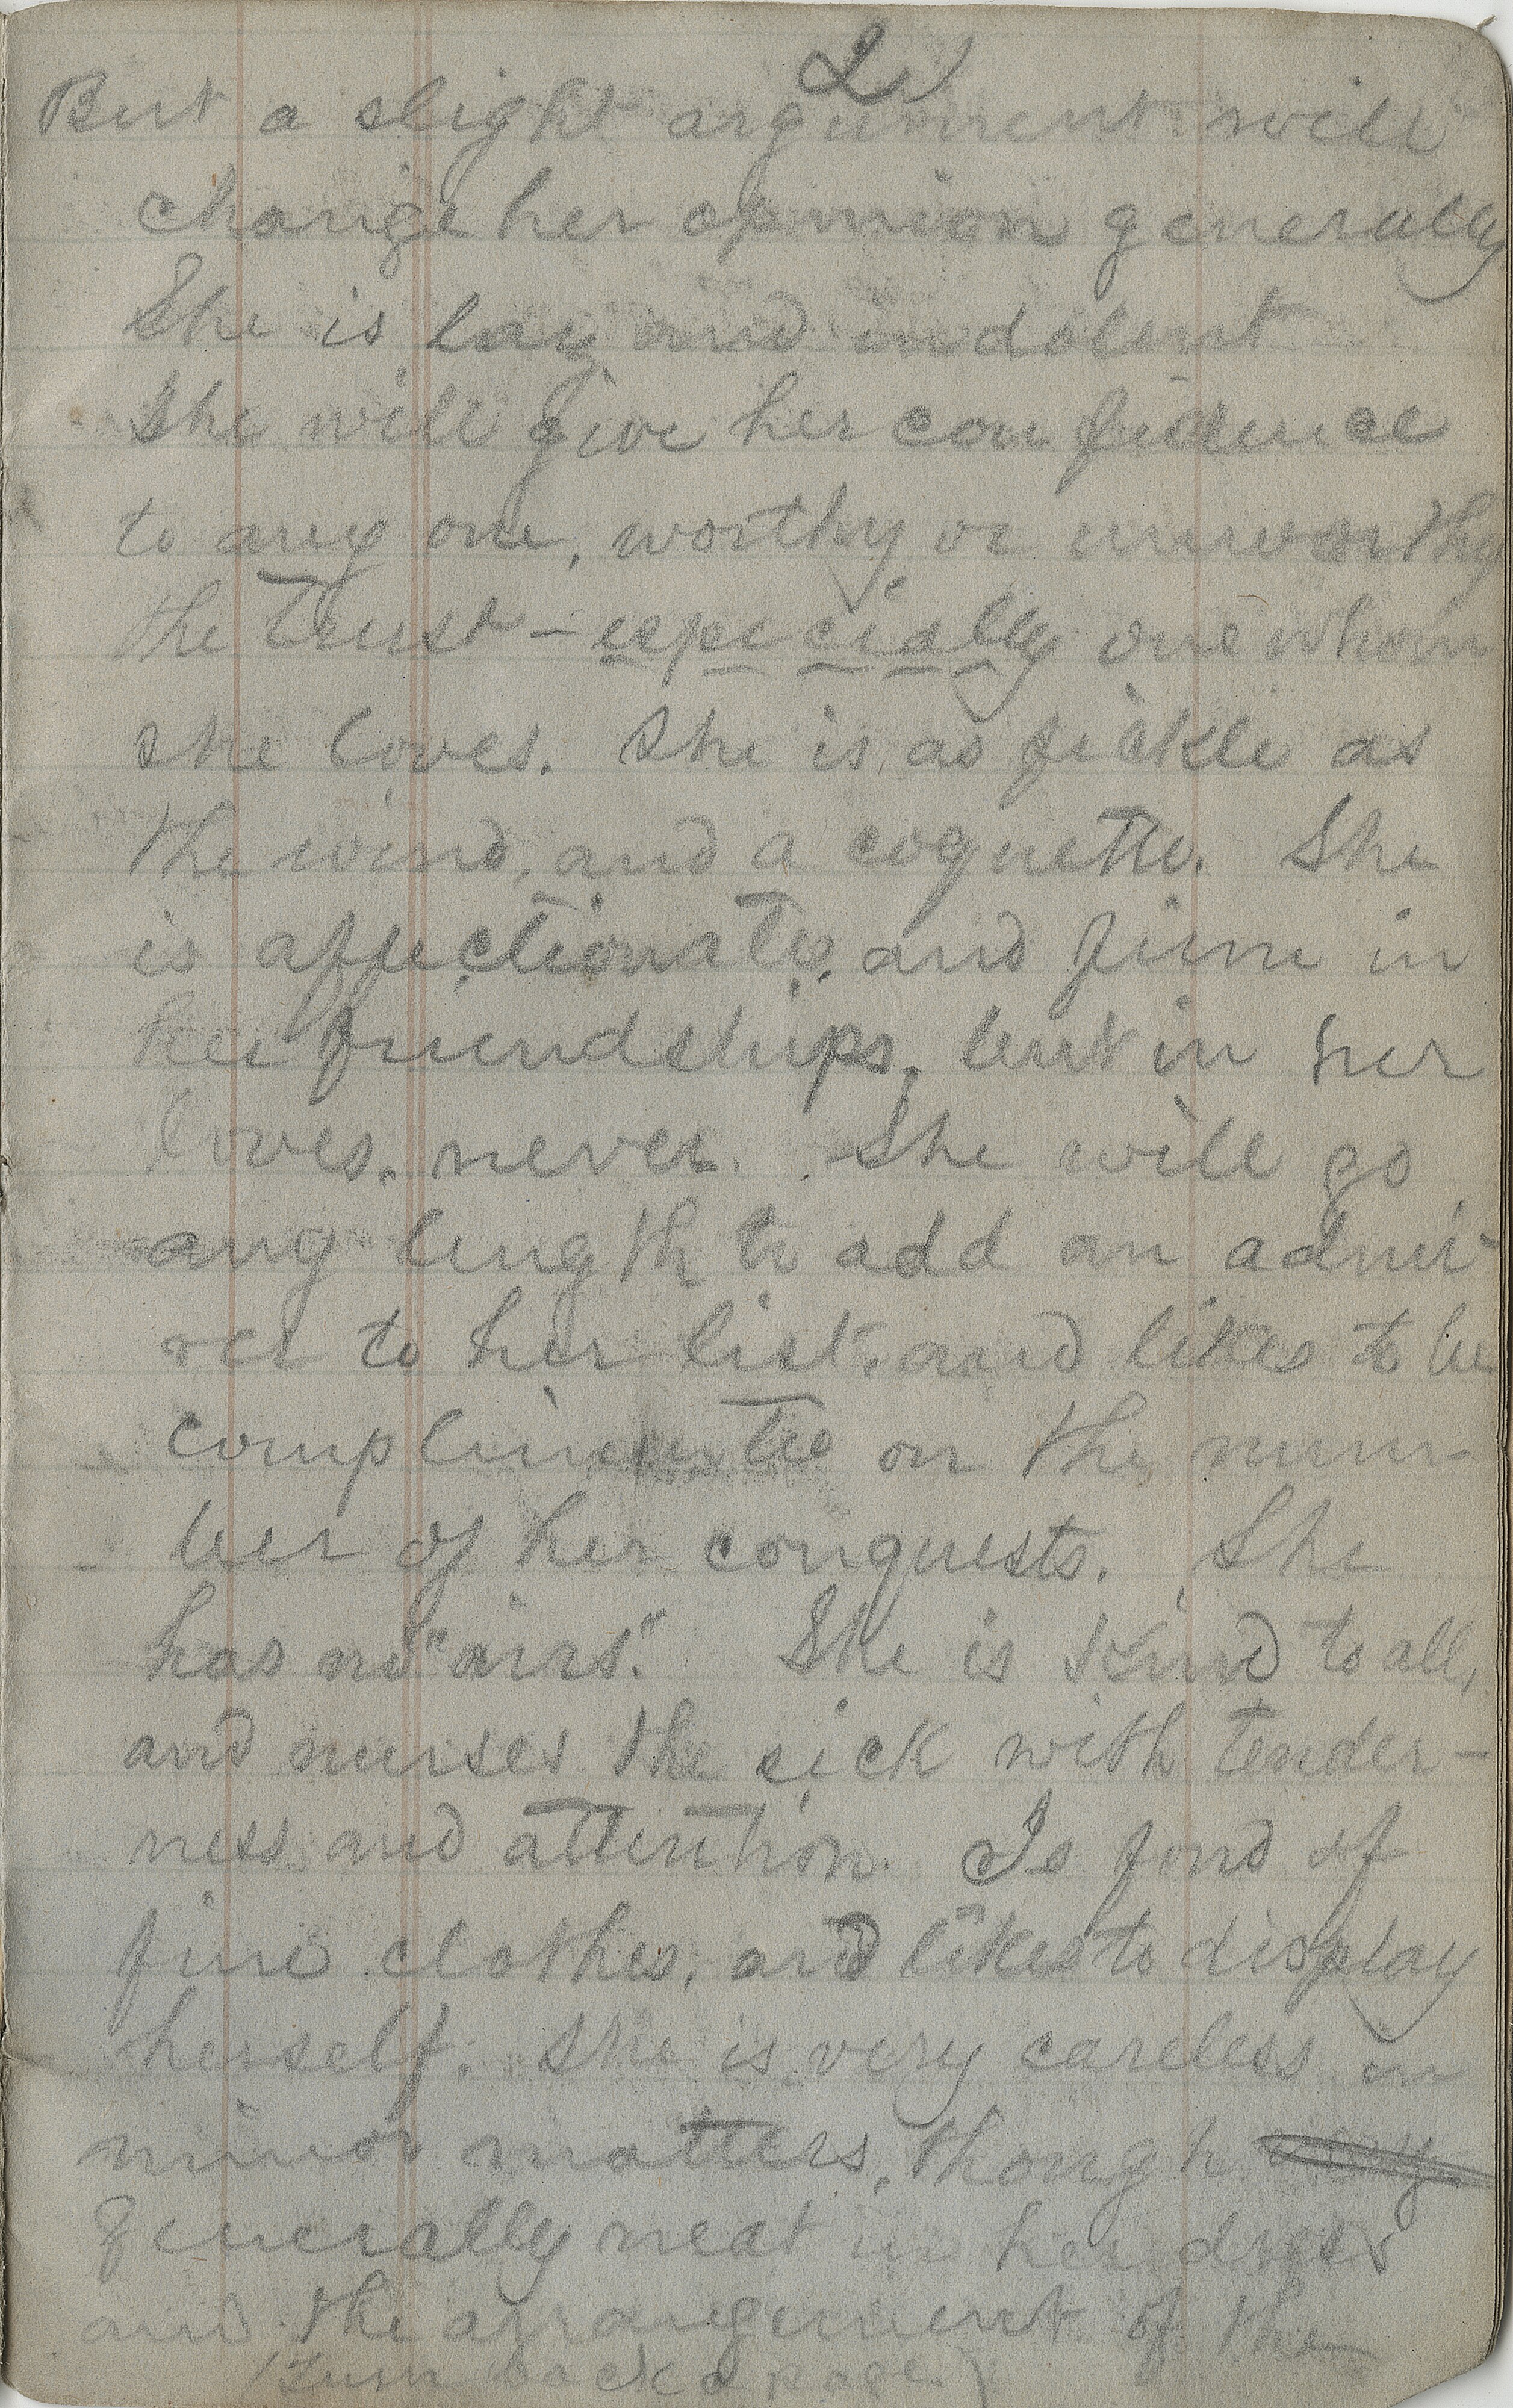 2)
But a slight argument will
change her opinion generally
She is lazy and indolent
She will give her confidence
to any one, worthy or unworthy
the trust - especially one whom
she loves. She is as fickle as
the wind, and a coquette. She
is affectionate, and firm in
her friendships, but in her
loves, never. She will go
any length to add an admi-
rer to her list, and likes to be
complimented on the num-
ber of her conquests. She
has no "airs". She is kind to all,
and nurses the sick with tender-
ness and attention. Is fond of
fine clothes, and likes to display
herself. She is very careless in
minor matters, though very
generally neat in her dress
and the arrangement of the
(turn back a page)